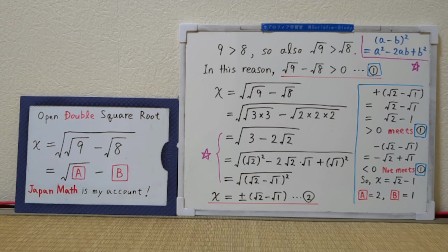 Open Double Square Root
x = √(√9 − √8)
= √A − B
Japan Math is my account!
9 > 8, so also √9 > √8.
(a−b)²
= a² − 2ab + b²
☆
In this reason, √9 − √8 > 0 … ①
x = √(√9 − √8)
= √(√(3×3) − √(2×2×2))
= √(3 − 2√2)
☆ = √((√2)² − 2√2·√1 + (√1)²)
= √((√2 − √1)²)
x = ±(√2 − √1) … ②
+(√2 − √1)
= √2 − √1
= √2 − 1
> 0 meets ①
−(√2 − √1)
= −√2 + √1
< 0 Not meets ①
So, x = √2 − 1
A = 2, B = 1